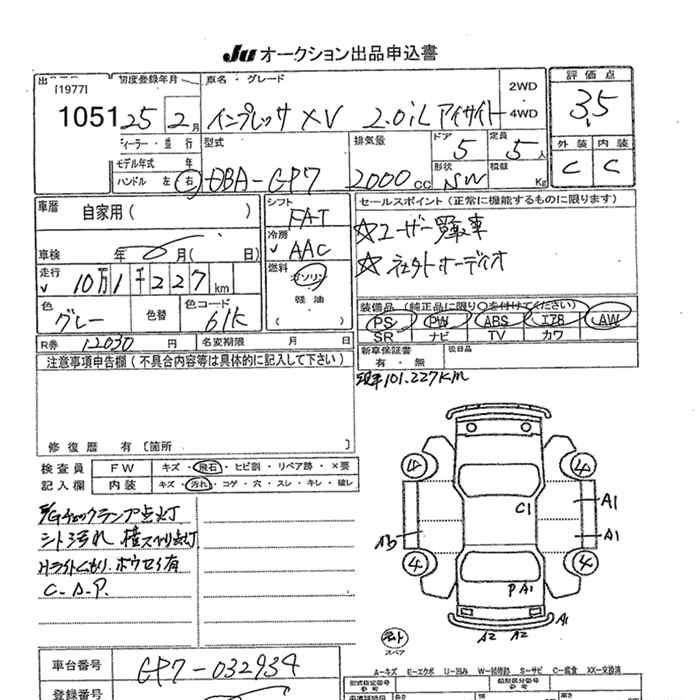 Ju オークション出品申込書
出
[1977]
1051
初度登録年月
25 2月
車名・グレード
インプレッサ XV 2.0i L アイサイト
2WD
4WD
評価点
3.5
外装 内装
C C
ディーラー・並行
モデル年式 年
ハンドル 左 右
型式
DBA-GP7
排気量
2000cc
ドア
5
形状
SW
定員
5人
積載
Kg
車暦
自家用( )
車検 年 月( 日)
走行
10万1千227km
色
グレー
色替
色コード
61K
シフト
FAT
冷房
AAC
燃料
ガソリン
軽油
( )
セールスポイント(正常に機能するものに限ります)
☆ユーザー買取車
装備品(純正品に限り○を付けてください)
PS PW ABS エアB AW
SR ナビ TV カワ
新車保証書
有・無
後日品
R券 12030円
名変期限 月 日
注意事項申告欄(不具合内容等は具体的に記入して下さい)
現車101.227KM
修復歴 有〔箇所 〕
検査員 FW キズ・飛石・ヒビ割・リペア跡・×要
記入欄 内装 キズ・汚れ・コゲ・穴・スレ・キレ・破レ
E/Gチェックランプ点灯
シート汚れ 横スベリ点灯
Hライトくもり.ホウセイ有
C.D.P.
4 4
C1
A1
A1
4 4
PA1
A1
A2 A2
スペア
A―キズ E―エクボ U―凹み W―補修跡 S―サビ C―腐食 XX―交換済
車台番号
GP7-032934
登録番号
型式指定番号
類別区分番号
長さ
幅
高さ